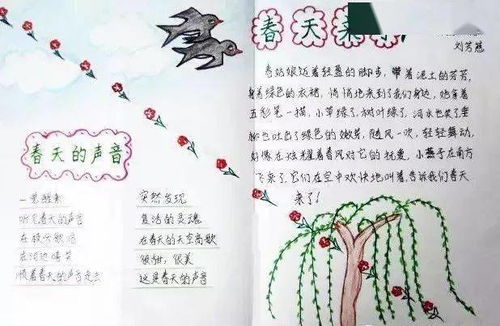 春天的声音
一觉醒来
听见春天的声音
在枝头歌唱
在河边嬉笑
顺着春天的声音走去
突然发现
复活的灵魂
在春天的天空高歌
很甜,很美
这是春天的声音
春天来
刘芳慈
春姑娘迈着轻盈的脚步,带着泥土的芬芳,
身着绿色的衣裙,悄悄地来到了我们身边,她拿着
五彩笔一描,小草绿了,树叶绿了,河水也笑了垂
柳也吐出了绿色的嫩芽,随风一吹,轻轻舞动,
好像在炫耀着春风对它的抚爱,小燕子在南方
飞来了,它们在空中欢快地叫着,告诉我们春天
来了!